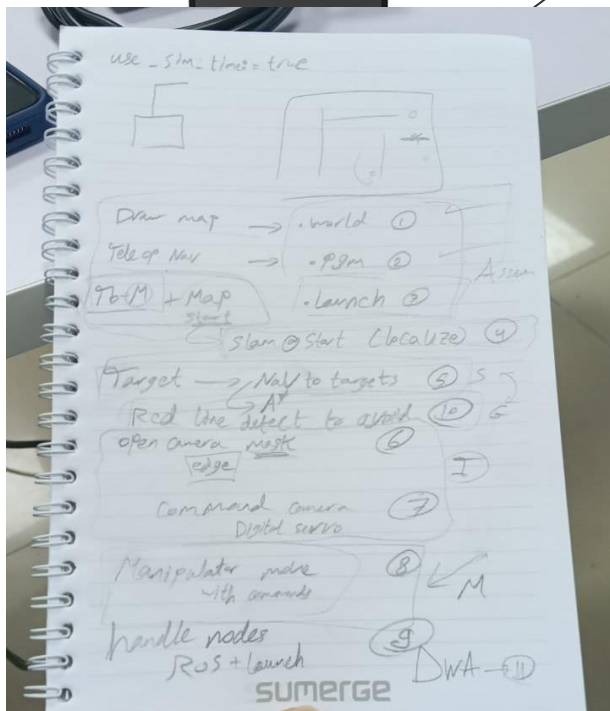 use_sim_time:= true
Draw map → .world ①
Teleop Nav → .pgm ②
Tb+M + Map .launch ③
start
Slam @ Start (localize) ④
Target → Nav to targets ⑤ S
A*
Red line detect to avoid ⑩ G
open camera mask ⑥
edge
I
Command camera ⑦
Digital servo
Manipulator move ⑧
with commands
M
handle nodes ⑨
ROS + Launch
DWA - ⑪
sumerge